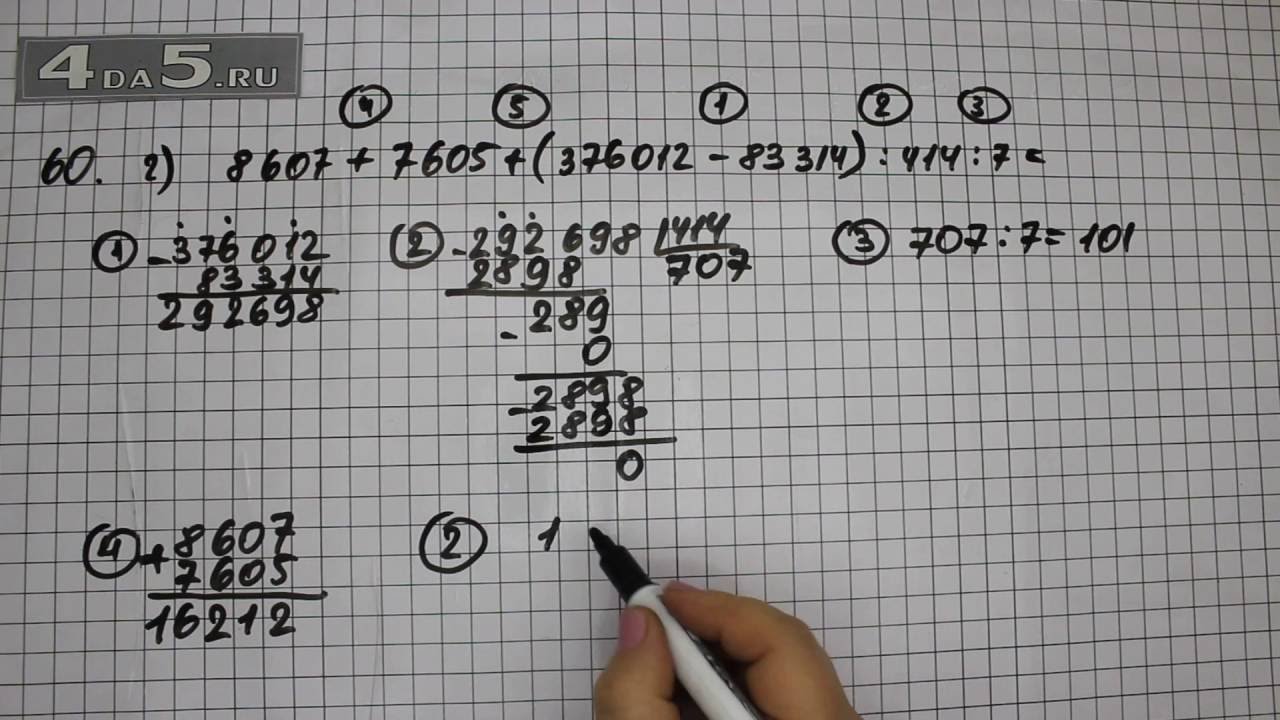 4DA5.RU
4 5 1 2 3
60. 2) 8607 + 7605 + (376012 - 83314) : 414 : 7 =
1 - 376012
83314
292698
2 - 292698 | 414
2898 707
- 289
0
- 2898
2898
0
3 707 : 7 = 101
4 + 8607
7605
16212
2 1